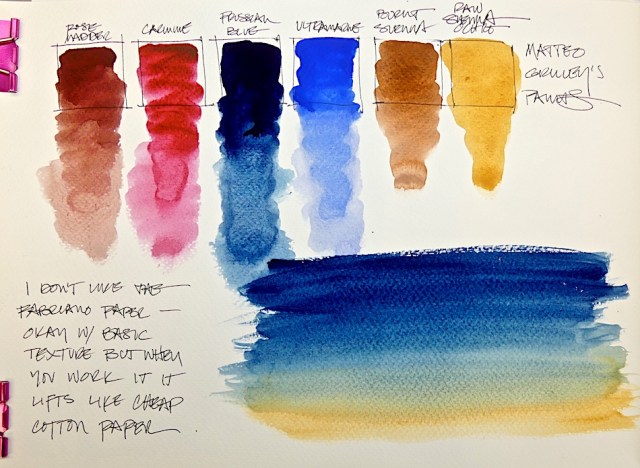 ROSE
MADDER
CARMINE
PRUSSIAN
BLUE
ULTRAMARINE
BURNT
SIENNA
RAW
SIENNA
OCHRE
MATTEO
PALETTE
I DON'T LIKE THE
FABRIANO PAPER —
OKAY W/ BASIC
TEXTURE BUT WHEN
YOU WORK IT IT
LIFTS LIKE CHEAP
COTTON PAPER.